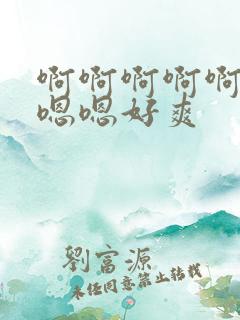 啊啊啊啊啊
嗯嗯好爽
劉富源
未经同意禁止转载